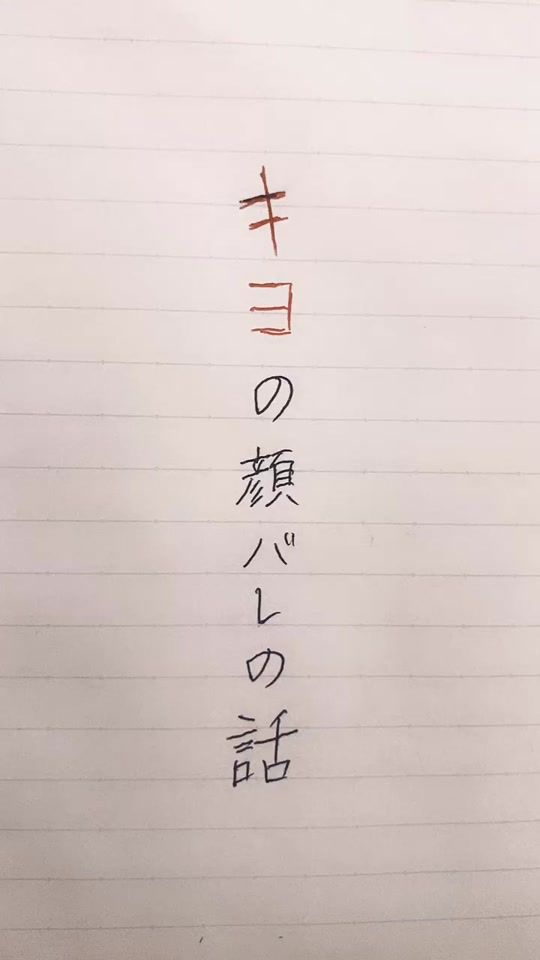 キヨの顔バレの話